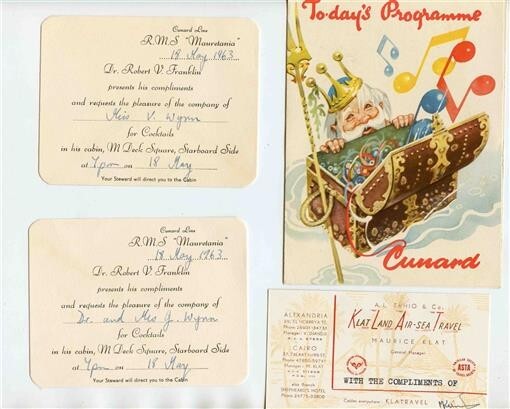 Cunard Line
R.M.S "Mauretania"
18 May 1963
Dr. Robert V. Franklin
presents his compliments
and requests the pleasure of the company of
Miss V. Wynn
for Cocktails
in his cabin, M Deck Square, Starboard Side
at 7pm on 18 May
Your Steward will direct you to the Cabin
Cunard Line
R.M.S "Mauretania"
18 May 1963
Dr. Robert V. Franklin
presents his compliments
and requests the pleasure of the company of
Dr. and Mrs J. Wynn
for Cocktails
in his cabin, M Deck Square, Starboard Side
at 7pm on 18 May
Your Steward will direct you to the Cabin
To-day's Programme
Cunard
& Co.
KLAT LAND AIR-SEA TRAVEL
MAURICE KLAT
General Manager
ALEXANDRIA
CAIRO
ASTA
WITH THE COMPLIMENTS OF
SHEPHEARD'S HOTEL
Cables everywhere KLATRAVEL